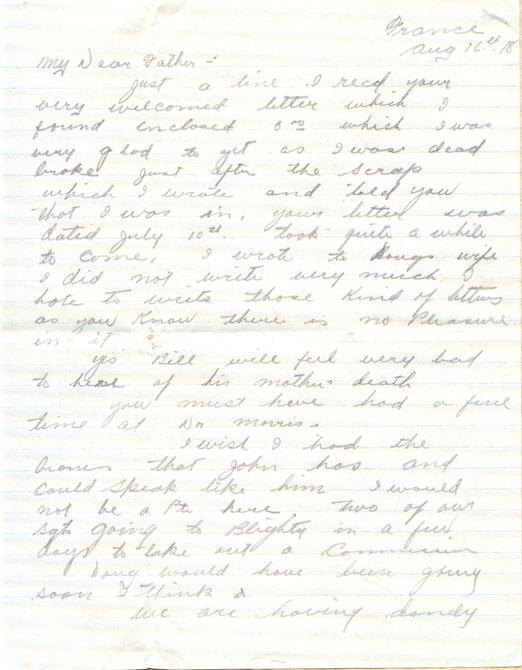 France
Aug 16th 18
My Dear Father -
Just a line I recd your
very welcomed letter which I
found enclosed 5.00 which I was
very glad to get as I was dead
broke just after the scrap
which I wrote and told you
that I was in, your letter was
dated July 10th. Took quite a while
to come. I wrote to Dougs wife
I did not write very much I
hate to write those kind of letters
as you know there is no Pleasure
in it
Yes Bill will feel very bad
to hear of his mothers death
you must have had a fine
time at Dr Morris.
I wish I had the
that John has and
could speak like him I would
not be a Pte here. two of our
sgts going to Blighty in a few
days to take out a Commission
Doug would have been going
soon I think
we are having dandy